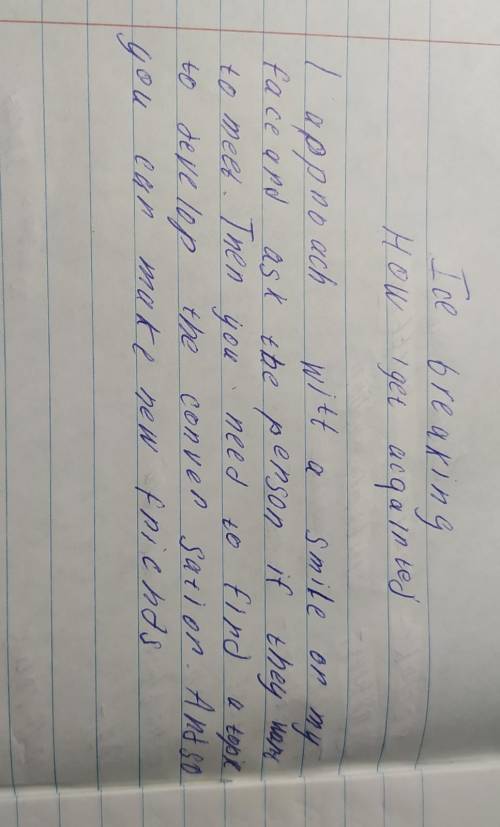 Ice breaking
How i get acqainted
I approach witt a smile on my
face and ask the person if they want
to meet. Then you need to find a topik
to develop the conver sation. And so
you can make new friends